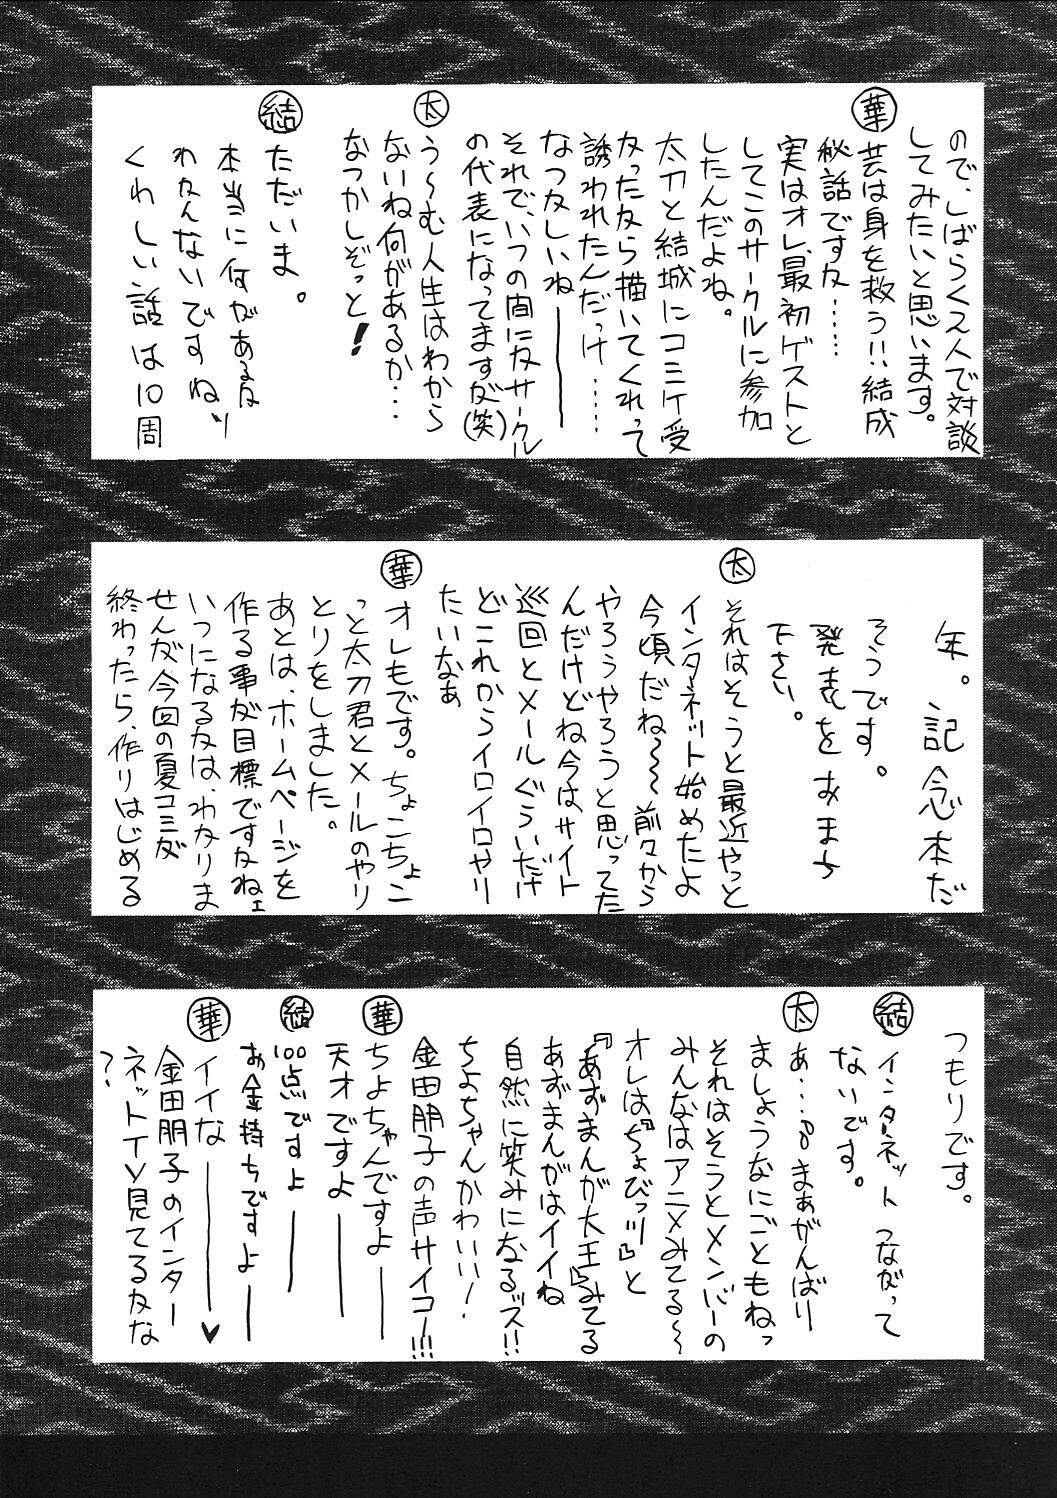 ので、しばらく3人で対談
してみたいと思います。
華 芸は身を救う!!結成
秘話ですな……
実はオレ、最初ゲストと
してこのサークルに参加
したんだよね。
太刀と結城にコミケ受
かったなら描いてくれって
誘われたんだっけ……
なつかしいね――
それで、いつの間にかサークル
の代表になってますな(笑)
太 う〜む人生はわから
ないね何があるか…
なつかしぞっと!
結 ただいま。
本当に何があるか
わかんないですね。
くわしい話は10周
年。記念本だ
そうです。
発表をおまち
下さい。
太 それはそうと最近やっと
インターネット始めたよ
今頃だね〜〜前々から
やろうやろうと思ってた
んだけどね今はサイト
巡回とメールぐらいだけ
どこれからイロイロやり
たいなぁ
華 オレもです。ちょこちょこ
っと太刀君とメールのやり
とりをしました。
あとは、ホームページを
作る事が目標ですかねェ
いつになるかは、わかりま
せんが今回の夏コミが
終わったら、作りはじめる
つもりです。
結 インターネットつながって
ないです。
太 あ…。まぁがんばり
ましょうなにごともねっ
それはそうとメンバーの
みんなはアニメみてる〜
オレは『ちょびっツ』と
『あずまんが大王』みてる
あずまんがはイイね
自然に笑みになるッス!!
ちよちゃんかわいい!
金田朋子の声サイコー!!!
華 ちよちゃんですよ――
天才ですよ――
結 100点ですよ――
お金持ちですよ――
華 イイな――♥
金田朋子のインター
ネットTV見てるかな
?